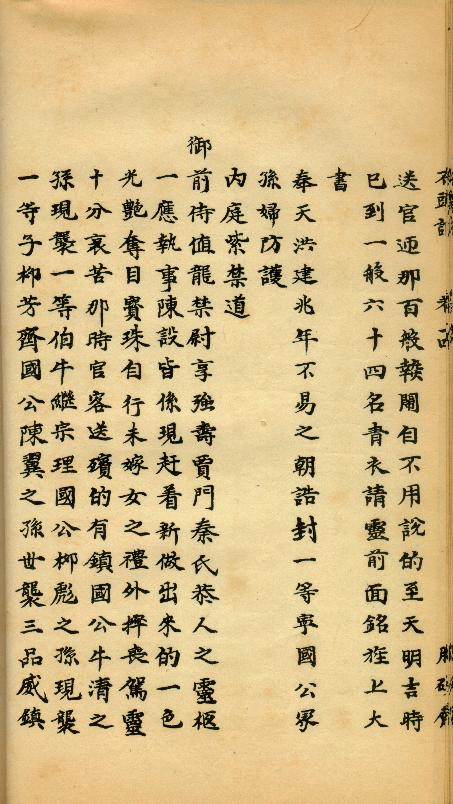 送官迎那百般熱鬧自不用說的至天明吉時
已到一般六十四名青衣請靈前面銘旌上大
書
奉天洪建兆年不易之朝誥封一等寧國公冢
孫婦防護
內庭紫禁道
御前侍值龍禁尉享強壽賈門秦氏恭人之靈柩
一應執事陳設皆係現趕着新做出來的一色
光艷奪目寶珠自行未嫁女之禮外摔喪駕靈
十分哀苦那時官客送殯的有鎮國公牛清之
孫現襲一等伯牛繼宗理國公柳彪之孫現襲
一等子柳芳齊國公陳翼之孫世襲三品威鎮